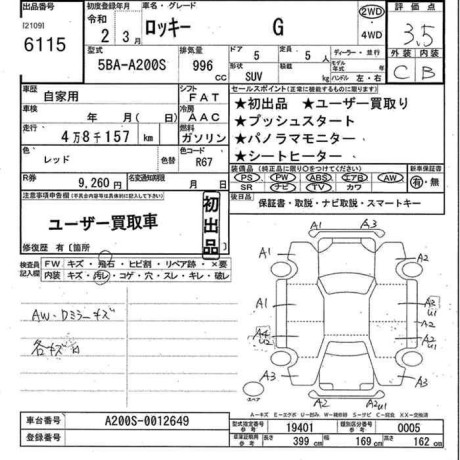 出品番号 初度登録年月 車名・グレード 2WD 評価点
I2109I 令和 ロッキー G 4WD 3.5
6115 2 3月
型式 排気量 ドア 定員 ディーラー・並行 外装 内装
5BA-A200S 996 CC 5 5人 モデル年式 年 C B
形状 SUV 積載 kg ハンドル 左・右
車歴 自家用 シフト FAT セールスポイント(正常に機能するものに限ります)
車検 年 月(日) 冷房 AAC ★初出品 ★ユーザー買取り
走行 4万8千157 km 燃料 ガソリン ★プッシュスタート
色 レッド 色替 色コード R67 ★パノラマモニター
★シートヒーター
R券 9,260円 名変期限 月 日 装備品(純正品に限り○をつけてください) 新車保証書
PS PW ABS エアB AW 有・無
SR ナビ TV カワ
注意事項申告欄 初出品 後日品 保証書・取説・ナビ取説・スマートキー
ユーザー買取車
修復歴 有〔箇所
検査員記入欄 FW キズ・飛石・ヒビ割・リペア跡・×要
内装 キズ・汚レ・コゲ・穴・スレ・キレ・破レ
AW・Dミラーキズ
各キズ
A1 A3
A1 A2
A1 A3 U1
A2
A4 U2 A2 U1
A3 A3
A2 A2U1
スペア
A-キズ E-エクボ U-凹み W-補修跡 S-サビ C-腐食 XX-交換済
車台番号 A200S-0012649 型式指定番号 参考 19401 類別区分番号 参考 0005
登録番号 長さ 399 cm 幅 169 cm 高さ 162 cm